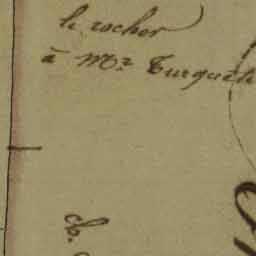 le rocher
à Mr Turquete
ch.